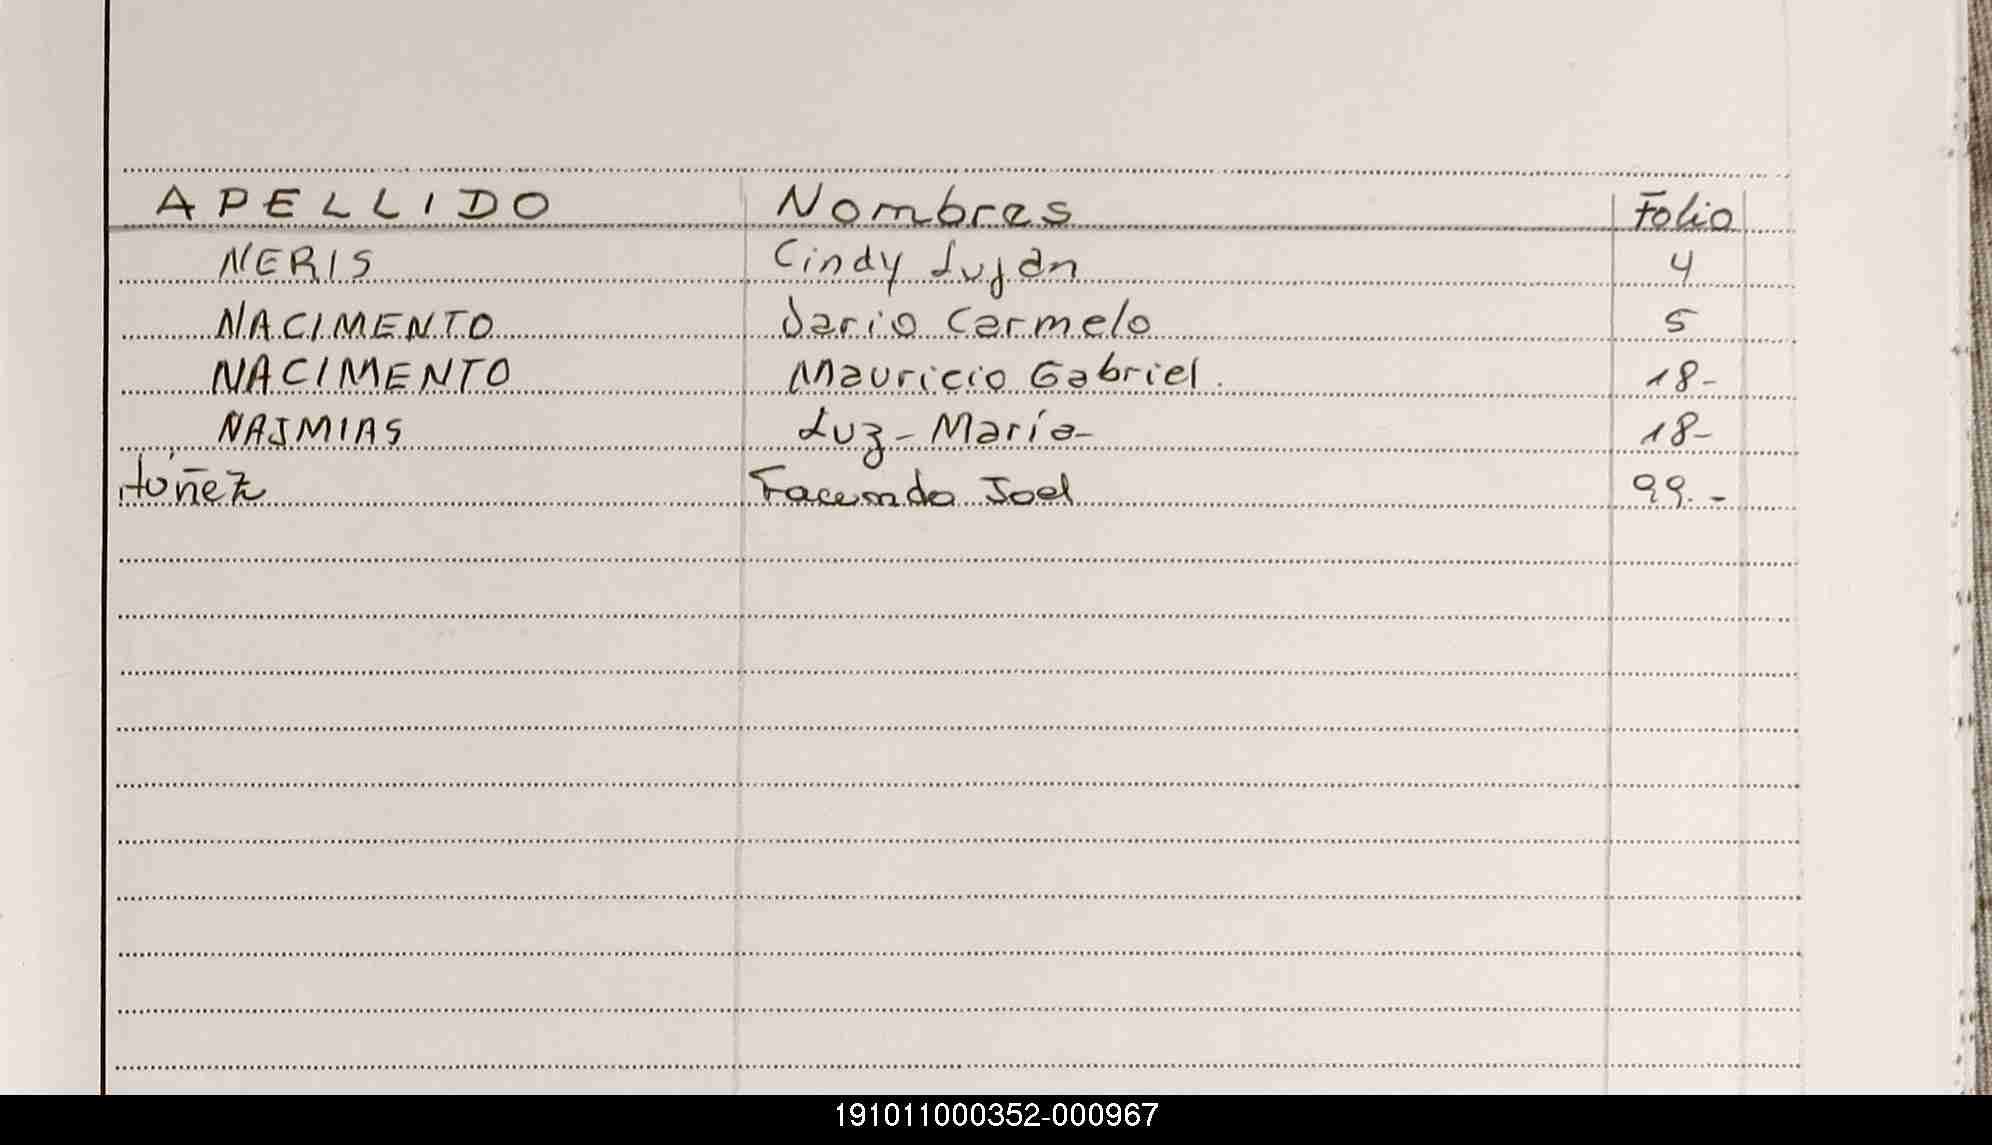 APELLIDO Nombres Folio
NERIS Cindy Luján 4
NACIMENTO Dario Carmelo 5
NACIMENTO Mauricio Gabriel. 18-
NAJMIAS Luz - María - 18-
Núñez Facundo Joel 99.-
191011000352-000967